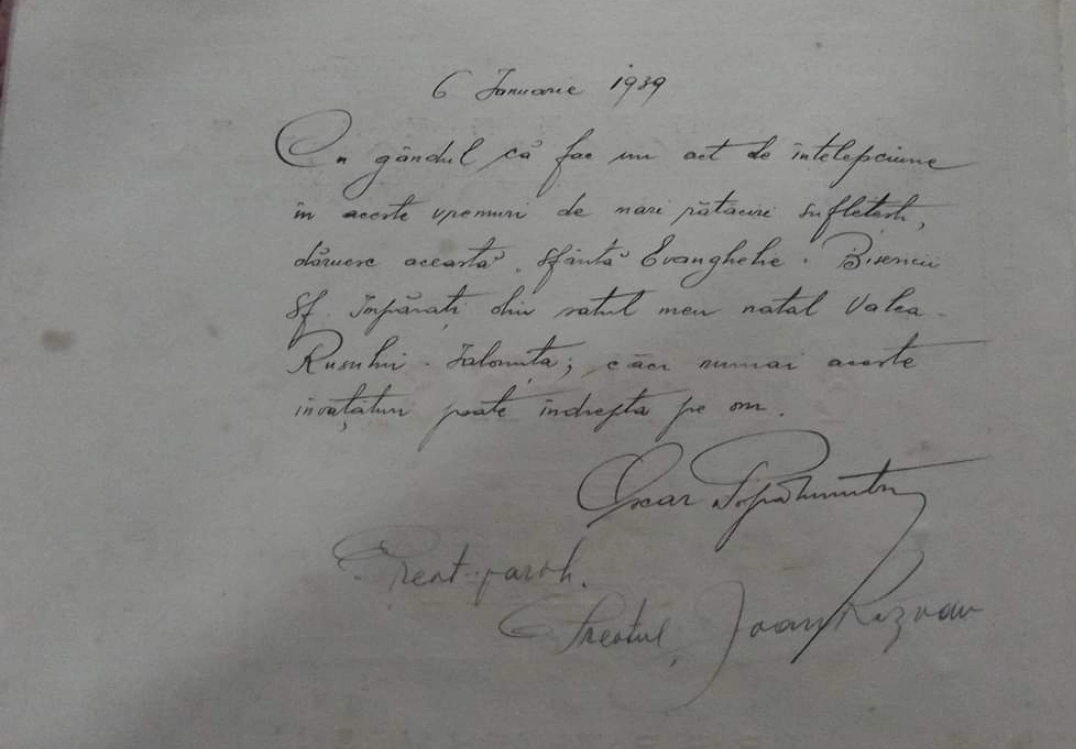 6 Ianuarie 1939
Cu gândul că fac un act de înțelepciune
în aceste vremuri de mari rătăciri sufletești,
dăruesc această sfântă Evanghelie. Bisericii
Sf. Împărați din satul meu natal Valea-
Rusului-Ialomița; căci numai aceste
învățături poate îndrepta pe om.
Oscar
Preot-paroh.
Preotul, Ioan Răzvan